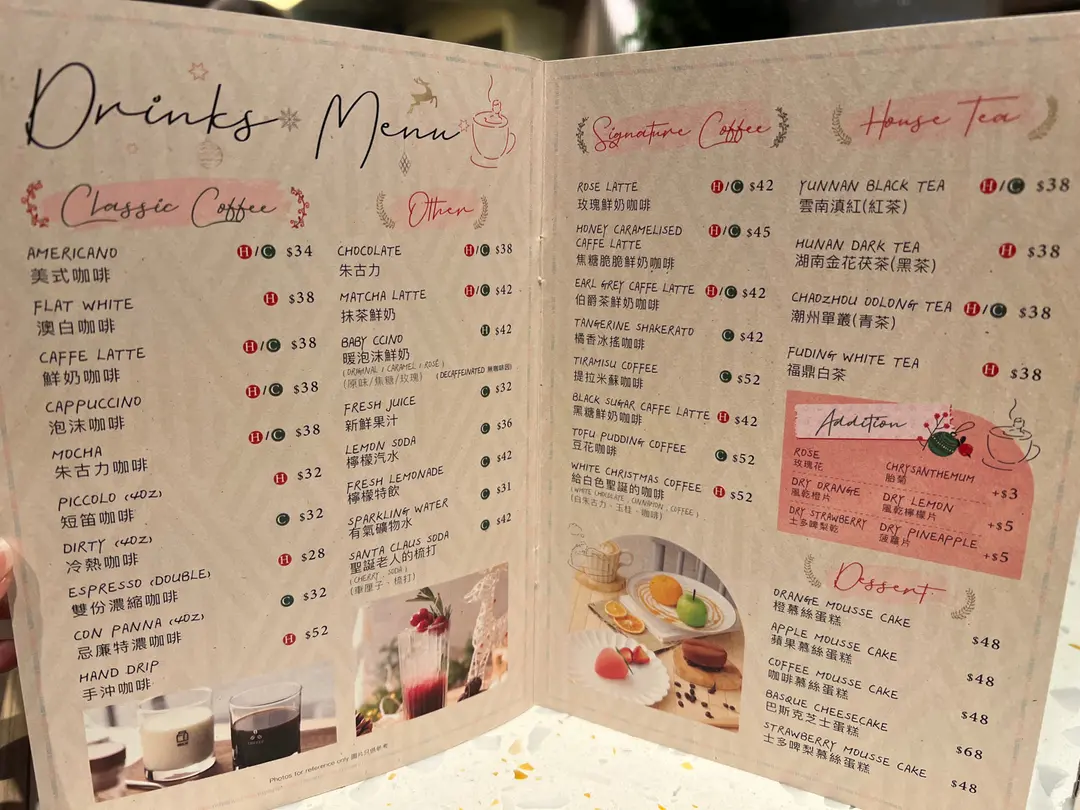 Drinks Menu
Classic Coffee
AMERICANO H/C $34
美式咖啡
FLAT WHITE H $38
澳白咖啡
CAFFE LATTE H/C $38
鮮奶咖啡
CAPPUCCINO H/C $38
泡沫咖啡
MOCHA H/C $38
朱古力咖啡
PICCOLO (4OZ) H $32
短笛咖啡
DIRTY (4OZ) C $32
冷熱咖啡
ESPRESSO (DOUBLE) H $28
雙份濃縮咖啡
CON PANNA (4OZ) C $32
忌廉特濃咖啡
HAND DRIP H $52
手沖咖啡
Other
CHOCOLATE H/C $38
朱古力
MATCHA LATTE H/C $42
抹茶鮮奶
BABY CCINO H $42
暖泡沫鮮奶
(ORIGINAL / CARAMEL / ROSE)
(原味/焦糖/玫瑰) (DECAFFEINATED 無咖啡因)
FRESH JUICE C $32
新鮮果汁
LEMON SODA C $36
檸檬汽水
FRESH LEMONADE C $42
檸檬特飲
SPARKLING WATER C $31
有氣礦物水
SANTA CLAUS SODA C $42
聖誕老人的梳打
(CHERRY、SODA)
(車厘子、梳打)
Photos for reference only 圖片只供參考
Signature Coffee
ROSE LATTE H/C $42
玫瑰鮮奶咖啡
HONEY CARAMELISED H/C $45
CAFFE LATTE
焦糖脆脆鮮奶咖啡
EARL GREY CAFFE LATTE H/C $42
伯爵茶鮮奶咖啡
TANGERINE SHAKERATO C $42
橘香冰搖咖啡
TIRAMISU COFFEE C $52
提拉米蘇咖啡
BLACK SUGAR CAFFE LATTE H $42
黑糖鮮奶咖啡
TOFU PUDDING COFFEE C $52
豆花咖啡
WHITE CHRISTMAS COFFEE H $52
給白色聖誕的咖啡
(WHITE CHOCOLATE、CINNAMON、COFFEE)
(白朱古力、玉桂、咖啡)
House Tea
YUNNAN BLACK TEA H/C $38
雲南滇紅(紅茶)
HUNAN DARK TEA H $38
湖南金花茯茶(黑茶)
CHAOZHOU OOLONG TEA H/C $38
潮州單叢(青茶)
FUDING WHITE TEA H $38
福鼎白茶
Addition
ROSE CHRYSANTHEMUM +$3
玫瑰花 胎菊
DRY ORANGE DRY LEMON +$5
風乾橙片 風乾檸檬片
DRY STRAWBERRY DRY PINEAPPLE +$5
士多啤梨乾 菠蘿片
Dessert
ORANGE MOUSSE CAKE $48
橙慕絲蛋糕
APPLE MOUSSE CAKE $48
蘋果慕絲蛋糕
COFFEE MOUSSE CAKE $48
咖啡慕絲蛋糕
BASQUE CHEESECAKE $68
巴斯克芝士蛋糕
STRAWBERRY MOUSSE CAKE $48
士多啤梨慕絲蛋糕